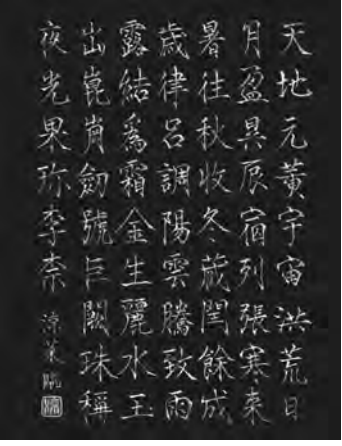 天地元黃宇宙洪荒日
月盈昃辰宿列張寒來
暑往秋收冬藏閏餘成
歲律呂調陽雲騰致雨
露結爲霜金生麗水玉
出崑崗劍號巨闕珠稱
夜光果珍李柰
臨